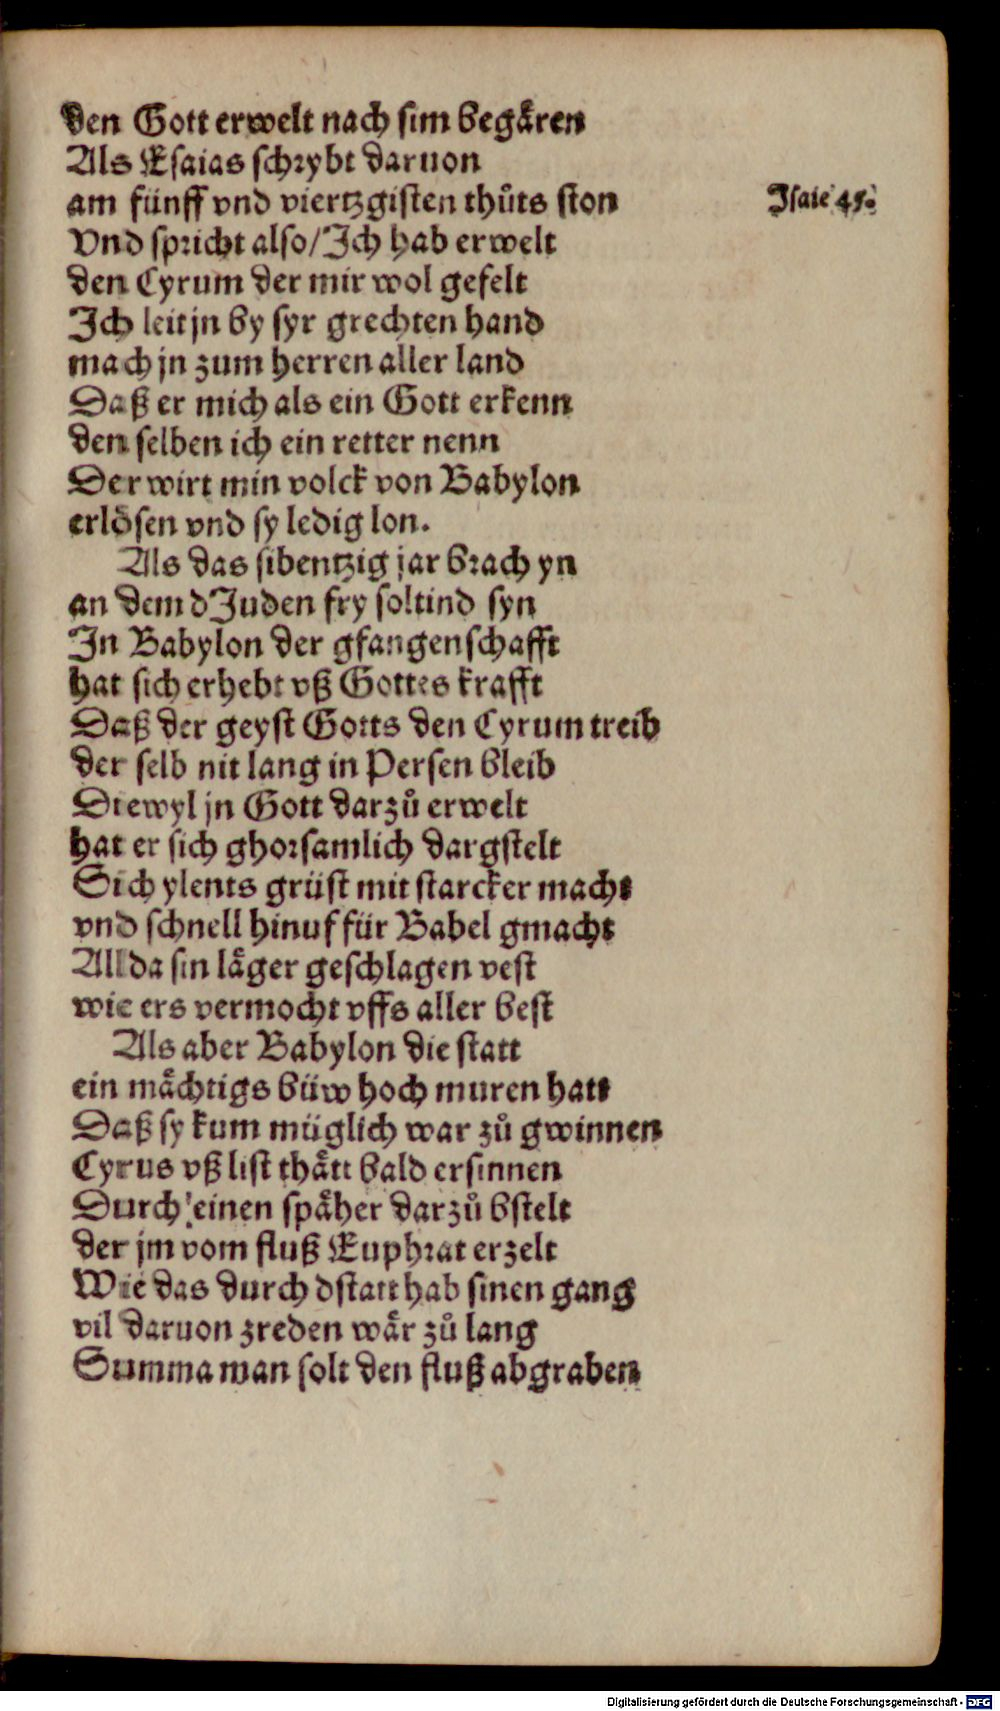 den Gott erwelt nach sim begåren
Als Esaias schrybt daruon
am fünff vnd viertzgisten thůts ston
Isaie 45.
Vnd spricht also/Ich hab erwelt
den Cyrum der mir wol gefelt
Ich leit jn by syr grechten hand
mach jn zum herren aller land
Daß er mich als ein Gott erkenn
den selben ich ein retter nenn
Der wirt min volck von Babylon
erlösen vnd sy ledig lon.
Als das sibentzig jar brach yn
an dem dJuden fry soltind syn
In Babylon der gfangenschafft
hat sich erhebt vß Gottes krafft
Daß der geyst Gotts den Cyrum treib
der selb nit lang in Persen bleib
Diewyl jn Gott darzů erwelt
hat er sich ghorsamlich dargstelt
Sich ylents grüst mit starcker macht
vnd schnell hinuf für Babel gmacht
Allda sin låger geschlagen vest
wie ers vermocht vffs aller best
Als aber Babylon die statt
ein måchtigs büw hoch muren hatt
Daß sy kum müglich war zů gwinnen
Cyrus vß list thått bald ersinnen
Durch einen spåher darzů bstelt
der jm vom fluß Euphrat erzelt
Wie das durch dstatt hab sinen gang
vil daruon zreden wår zů lang
Summa man solt den fluß abgraben
Digitalisierung gefördert durch die Deutsche Forschungsgemeinschaft - DFG